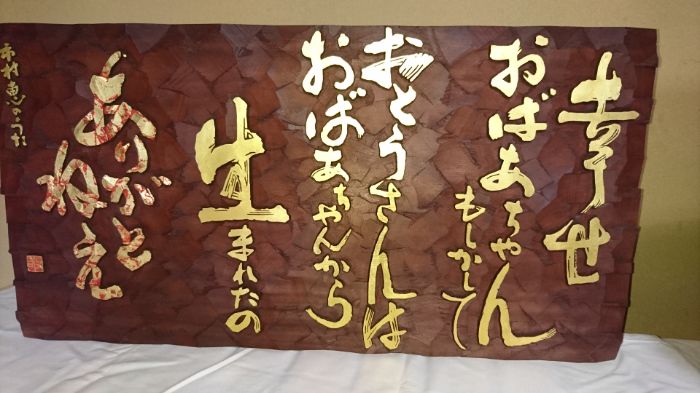 幸せ
おばあちゃん
もしかして
おとうさんは
おばあちゃんから
生まれたの
ありがと
ねえ
木村恵のうた